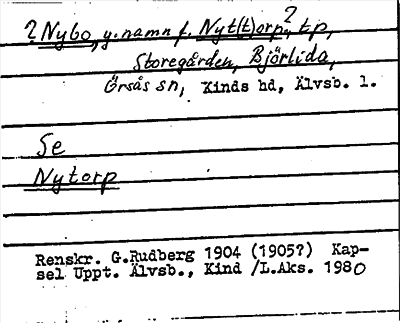 ? Nybo, y. namn f. Nyt(t)orp,? tp,
Storegården, Björlida,
Örsås sn, Kinds hd, Älvsb. l.
Se
Nytorp
Renskr. G.Rudberg 1904 (1905?) Kap-
sel Uppt. Älvsb., Kind /L.Aks. 1980